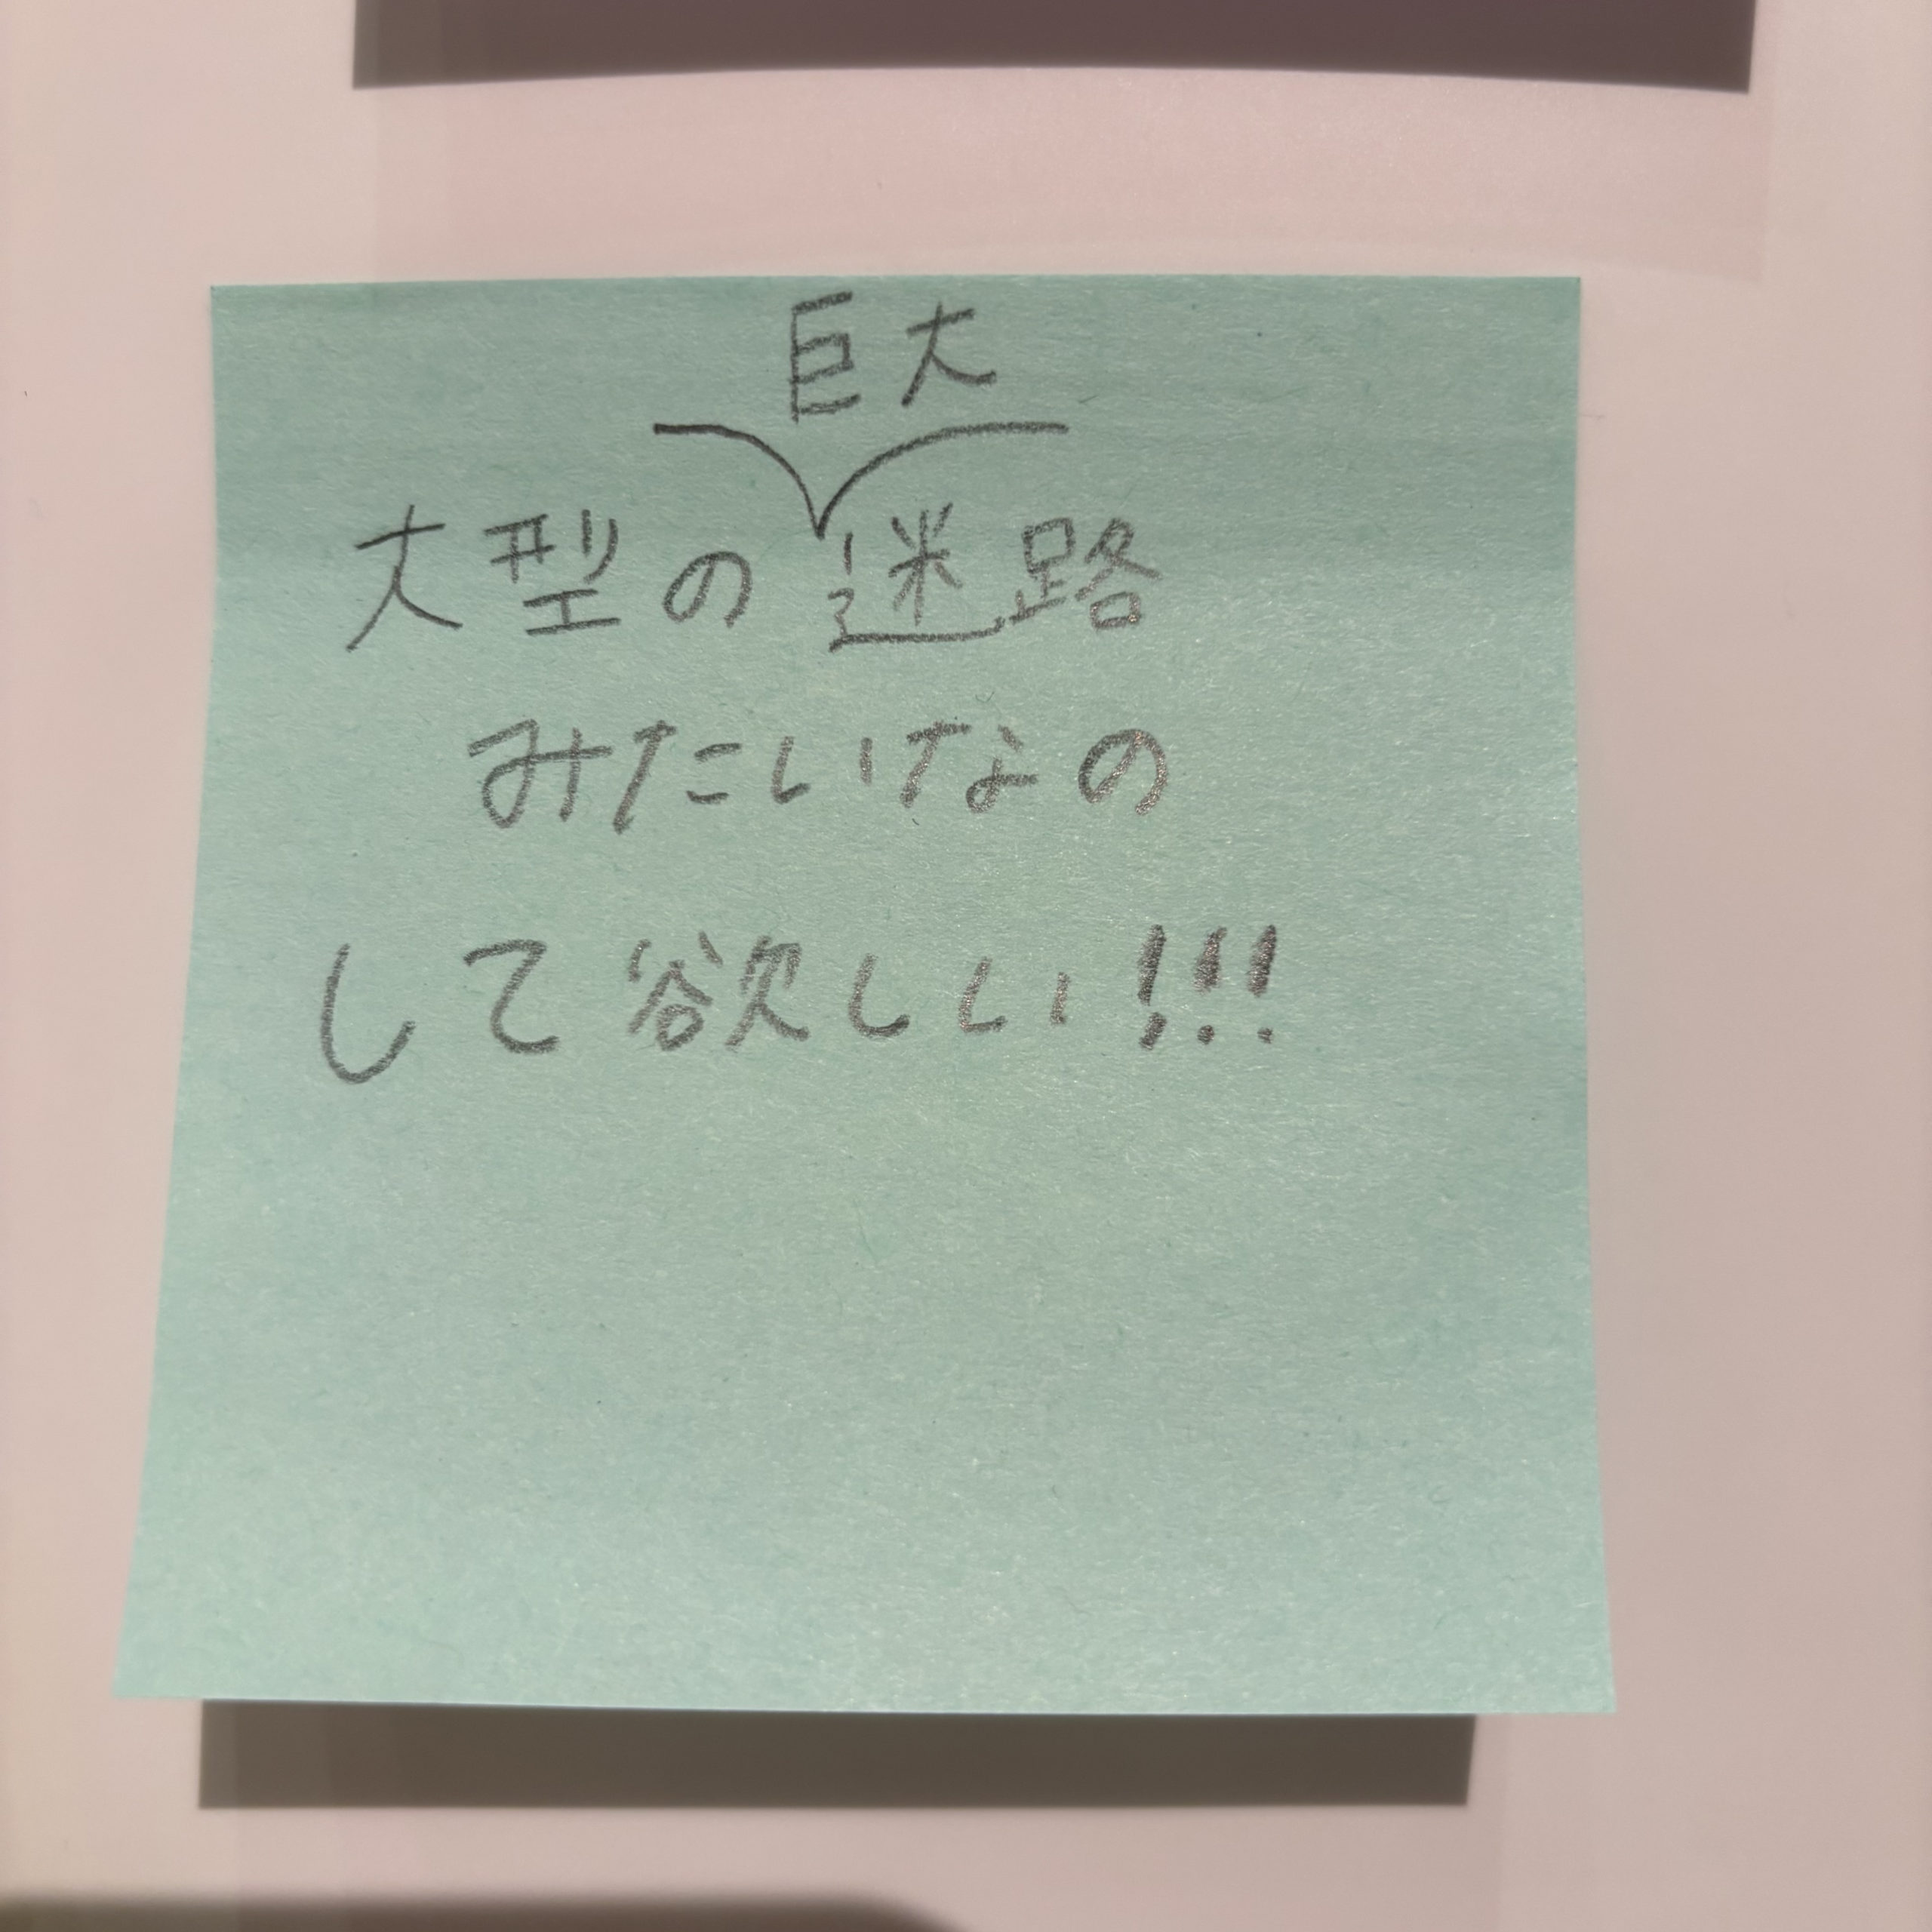 巨大
大型の迷路
みたいなの
して欲しい!!!